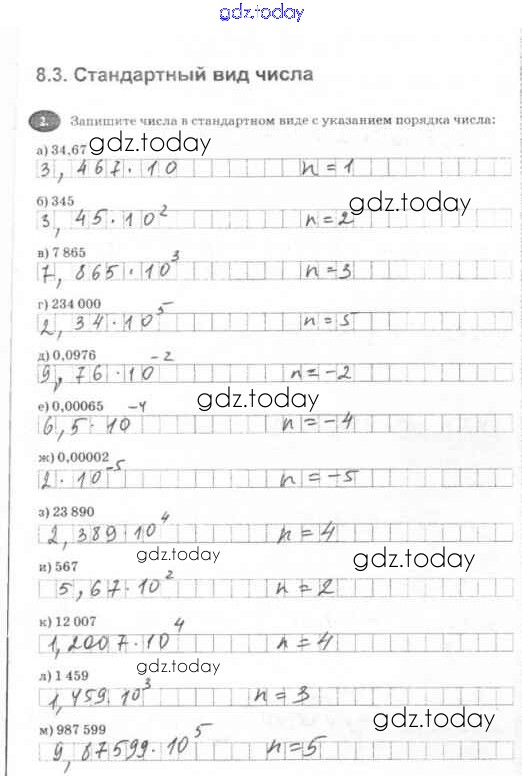 gdz.today
8.3. Стандартный вид числа
2. Запишите числа в стандартном виде с указанием порядка числа:
а) 34,67 gdz.today
3,467·10 n=1
б) 345 gdz.today
3,45·10² n=2
в) 7 865
7,865·10³ n=3
г) 234 000
2,34·10⁵ n=5
д) 0,0976
9,76·10⁻² n=-2
е) 0,00065 gdz.today
6,5·10⁻⁴ n=-4
ж) 0,00002
2·10⁻⁵ n=-5
з) 23 890
2,389·10⁴ n=4
gdz.today gdz.today
и) 567
5,67·10² n=2
к) 12 007
1,2007·10⁴ n=4
gdz.today
л) 1 459
1,459·10³ n=3
м) 987 599 gdz.today
9,87599·10⁵ n=5